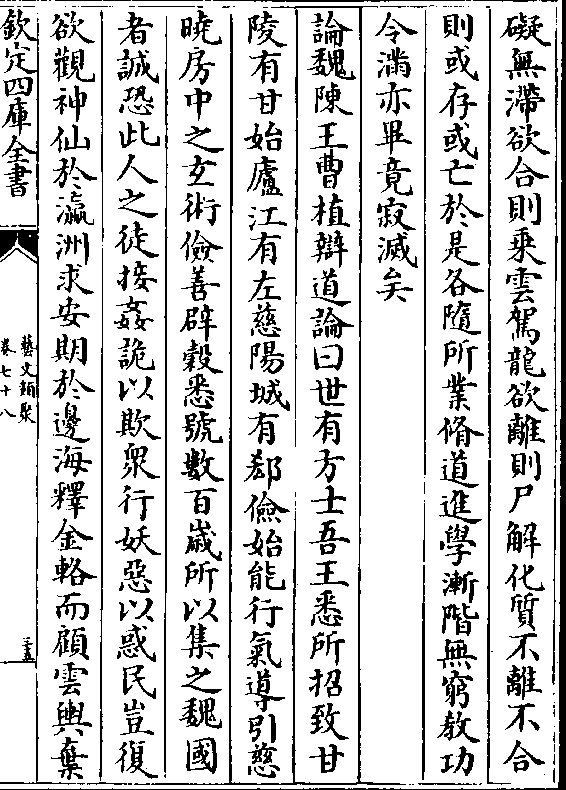 礙無滯欲合則乗雲駕龍欲離則尸解化質不離不合
則或存或亡於是各隨所業脩道進學漸階無窮敎功
令滿亦畢竟寂滅矣
論魏陳王曹植辯道論曰世有方士吾王悉所招致甘
陵有甘始廬江有左慈陽城有郄儉始能行氣導引慈
曉房中之玄術儉善辟穀悉號數百歲所以集之魏國
者誠恐此人之徒接姦詭以欺衆行妖惡以惑民豈復
欲觀神仙於瀛洲求安期於邊海釋金輅而顧雲輿棄
欽定四庫全書
藝文類聚
卷七十八
三五